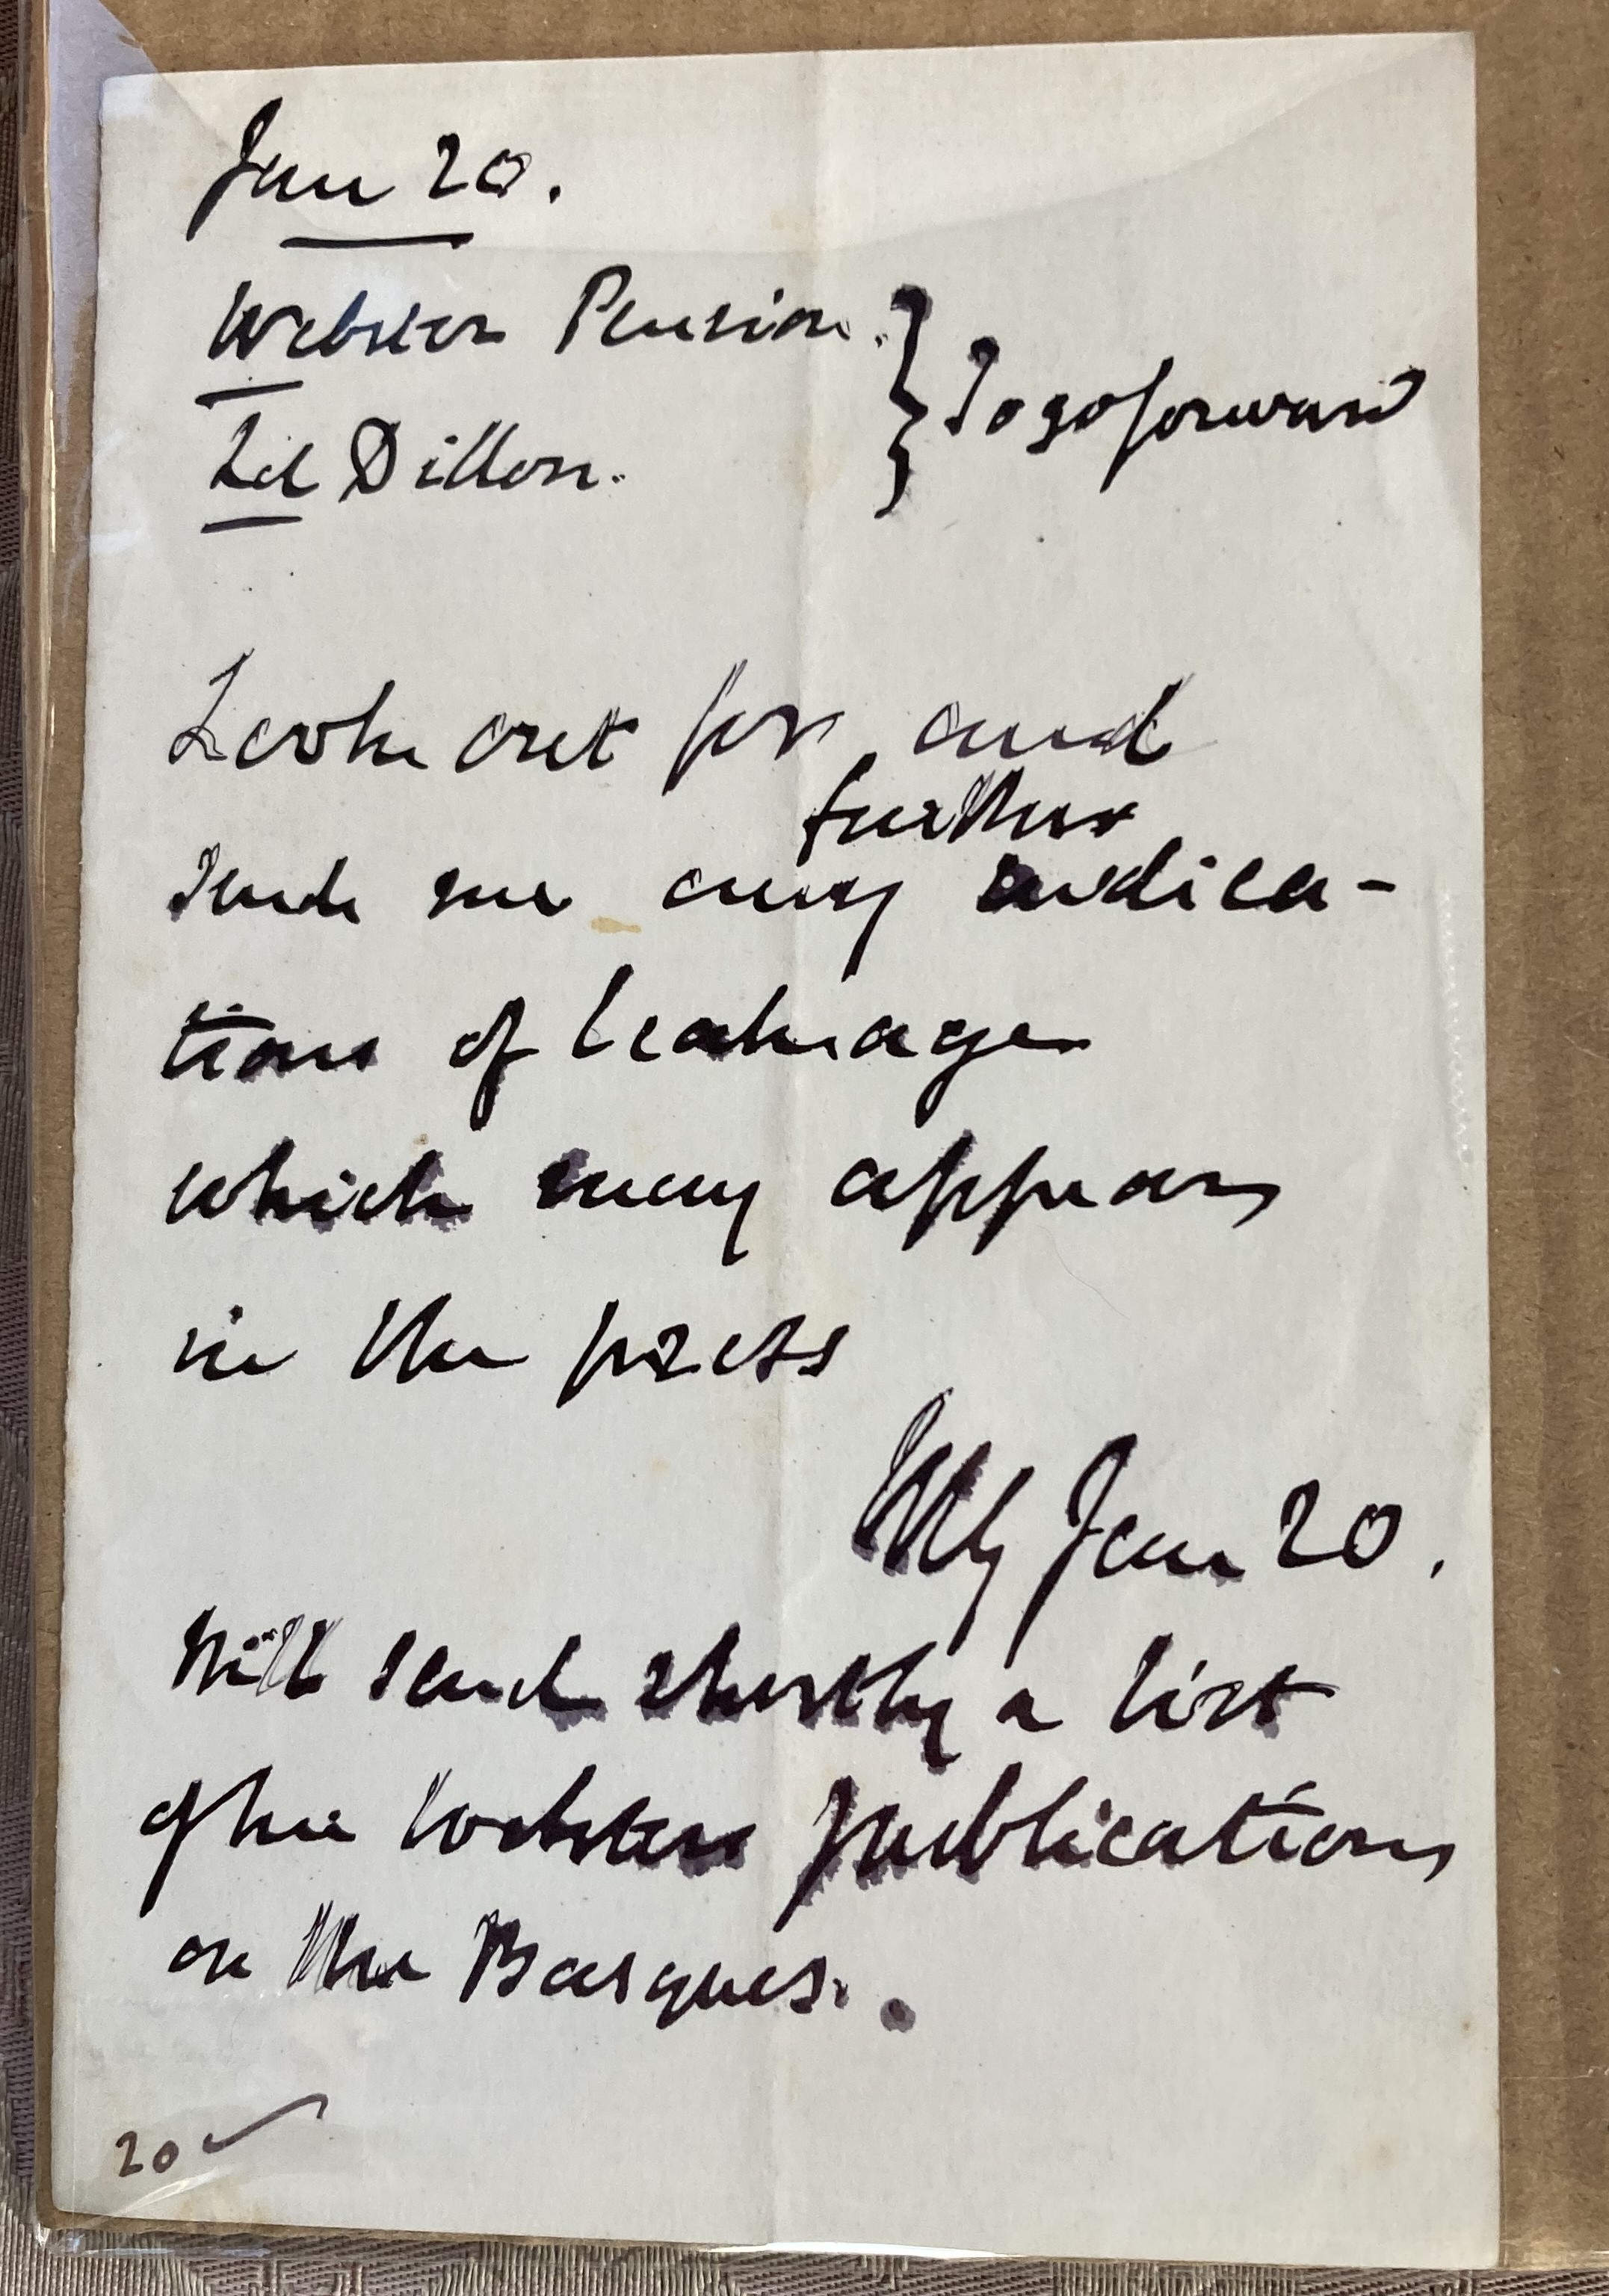 Jan 20.
Webster Pension.
Ld Dillon.
} To go forward
Look out for, and
further
send me any indica-
tions of leakage
which may appear
in the press
WEG Jan 20.
Will send shortly a list
of his Webster publications
on the Basques.
20